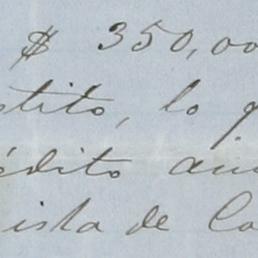 $ 350,00
stito, lo
édito
ista de Co